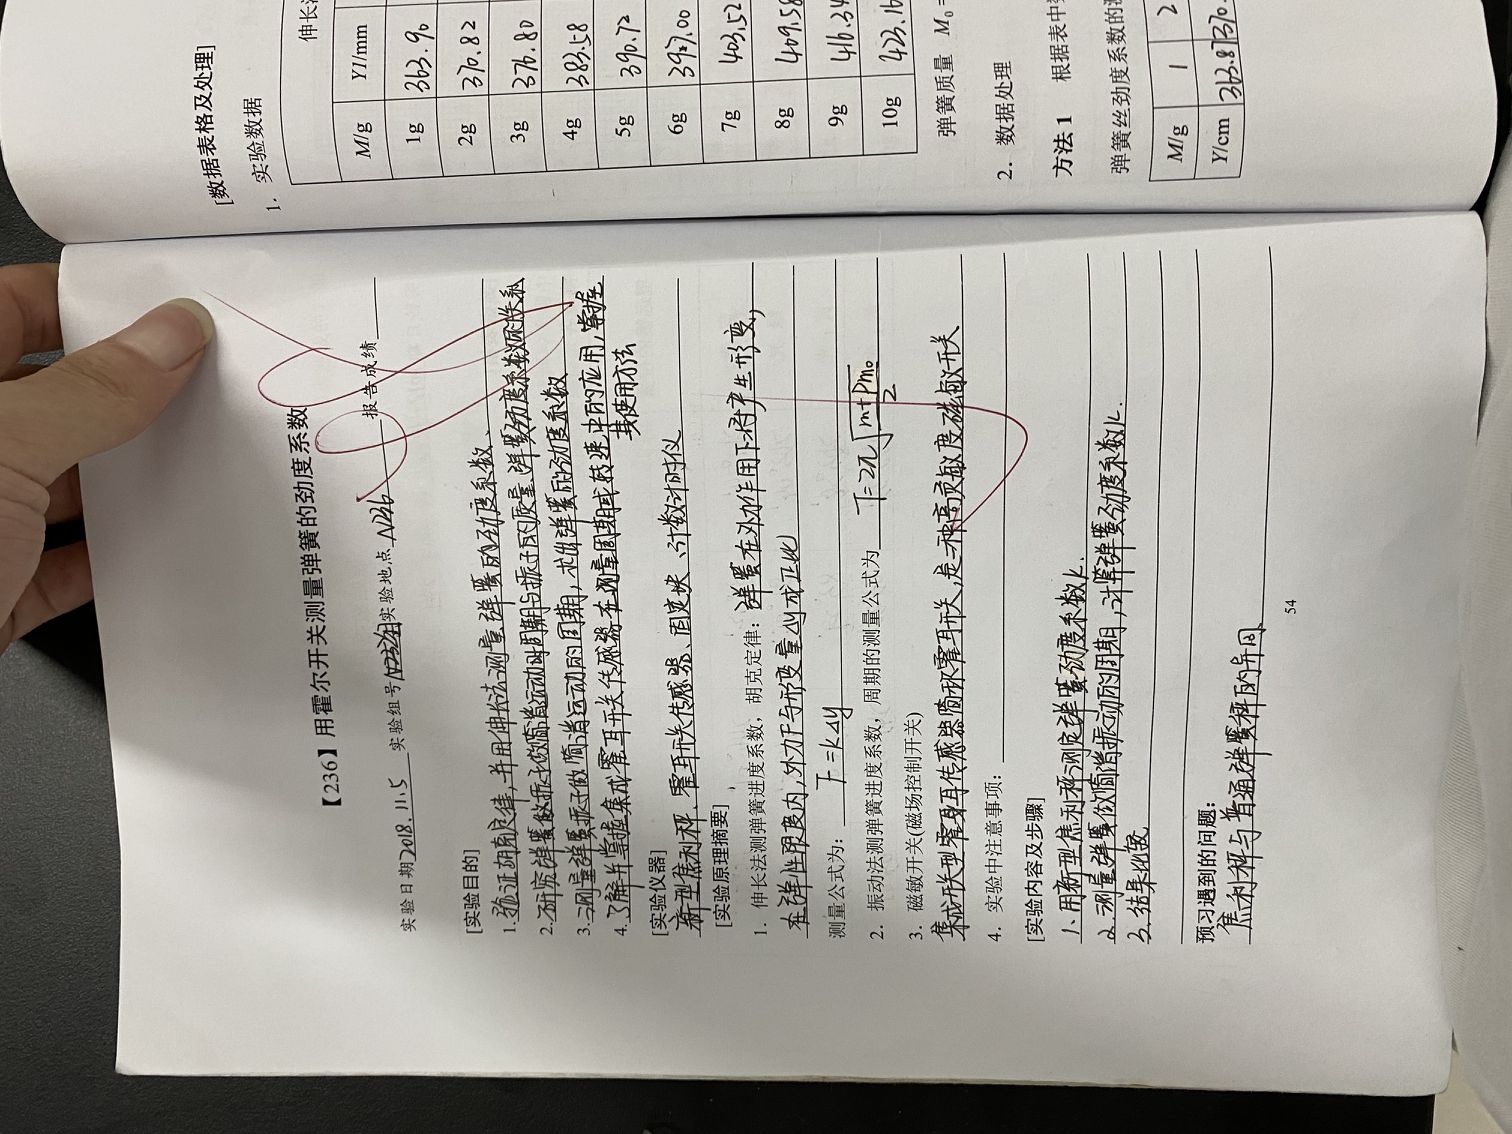 【236】用霍尔开关测量弹簧的劲度系数
实验日期2018.11.5 实验组号N232组实验地点N236 报告成绩
[实验目的]
1.验证胡克定律,并用伸长法测量弹簧的劲度系数、
2.研究弹簧做振子做简谐运动时周期与振子的质量、弹簧劲度系数的关系
3.测量弹簧振子做简谐运动的周期,求出弹簧的劲度系数
4.了解并掌握集成霍耳开关传感器在测量周期或转速中的应用,掌握
其使用方法
[实验仪器]
新型焦利秤、霍耳开关传感器、固定块、计数计时仪
[实验原理摘要]
1. 伸长法测弹簧进度系数,胡克定律:弹簧在外力作用下将产生形变,
在弹性限度内,外力F与形变量Δy成正比
测量公式为: F=kΔy
2. 振动法测弹簧进度系数,周期的测量公式为 T=2π√(m+Pm₀)/2
3. 磁敏开关(磁场控制开关)
集成开关型霍耳传感器简称霍耳开关,是一种高灵敏度磁敏开关
4. 实验中注意事项:
[实验内容及步骤]
1.用新型焦利秤测定弹簧劲度系数k.
2.测量弹簧做简谐振动的周期,计算弹簧劲度系数k.
3.结果比较
预习遇到的问题:
焦利秤与普通弹簧秤的异同
54
[数据表格及处理]
1. 实验数据
伸长
M/g Y1/mm
1g 363.90
2g 370.82
3g 376.80
4g 383.58
5g 390.72
6g 397.00
7g 403.52
8g 409.58
9g 416.34
10g 423.16
弹簧质量 M₀=
2. 数据处理
方法1 根据表中
弹簧丝劲度系数的
M/g 1 2
Y/cm 363.87 370.